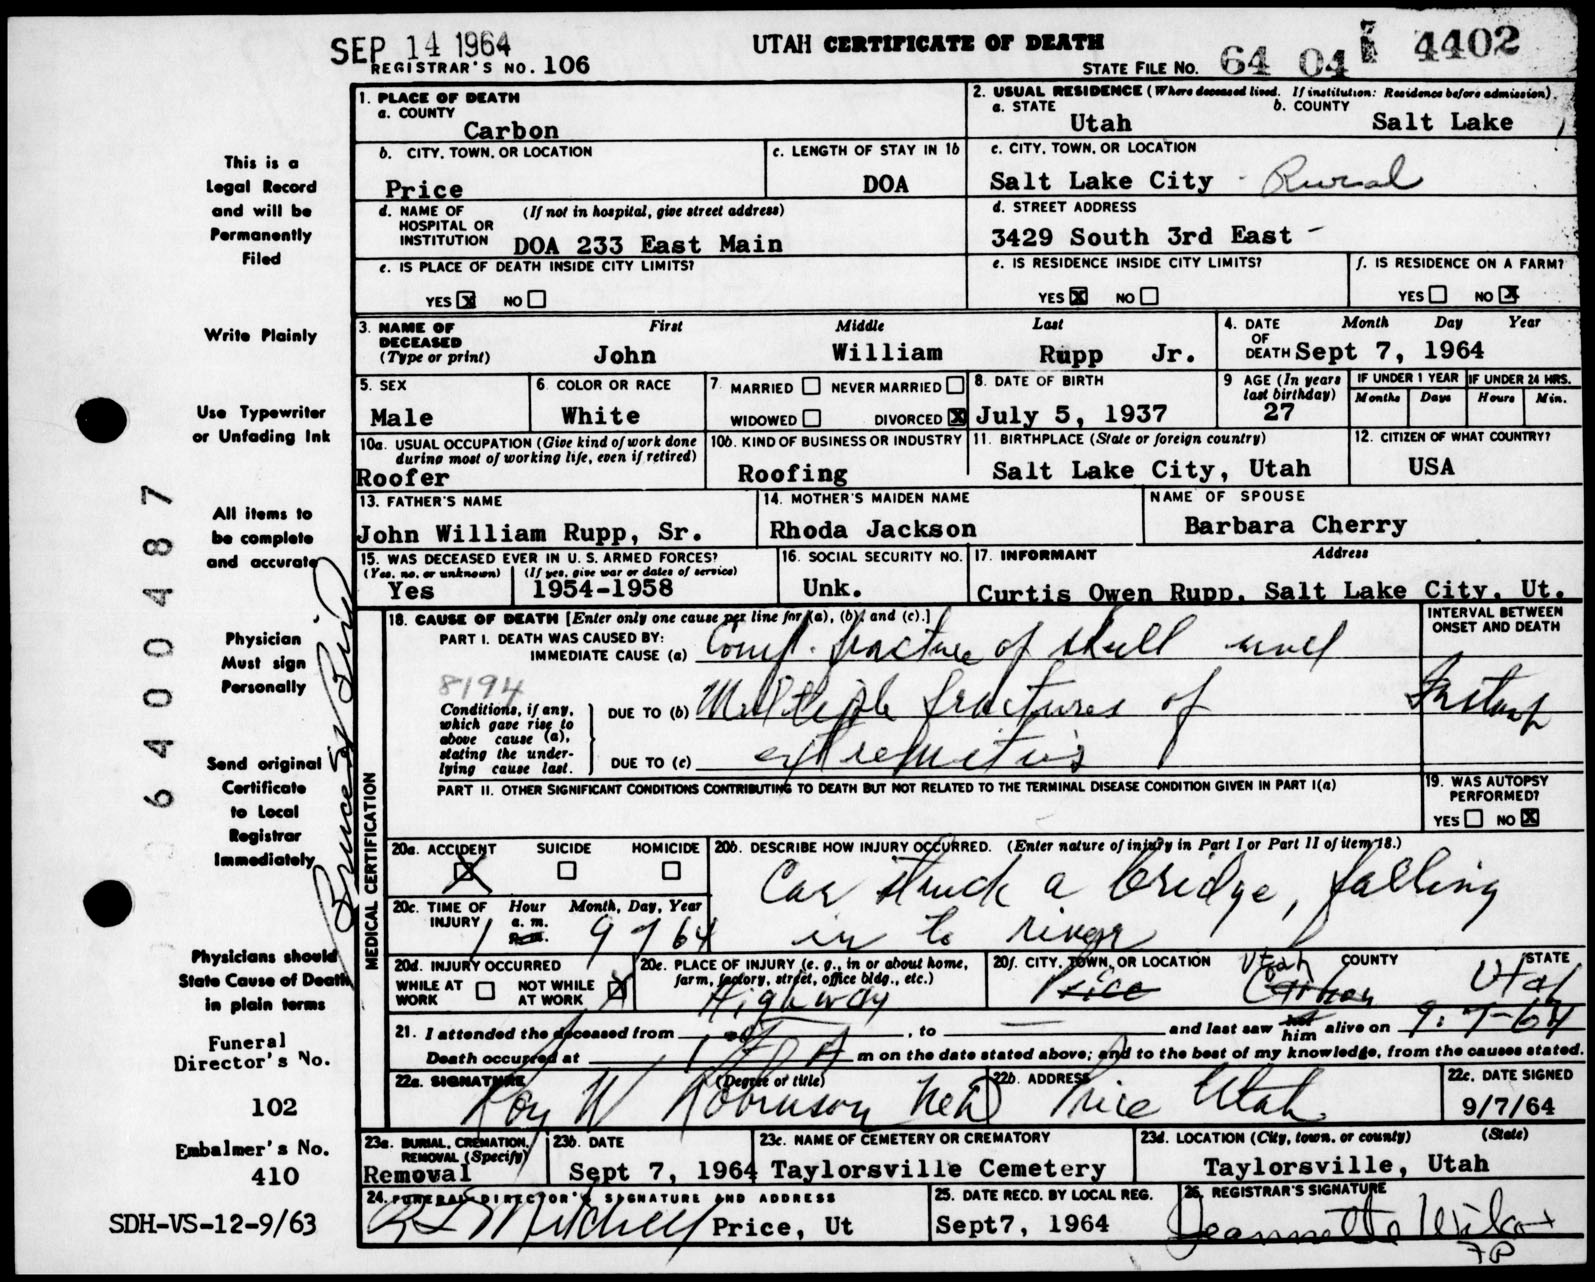 SEP 14 1964
UTAH CERTIFICATE OF DEATH
REGISTRAR'S NO. 106
STATE FILE NO. 64 04 4402
This is a
Legal Record
and will be
Permanently
Filed
Write Plainly
Use Typewriter
or Unfading Ink
All items to
be complete
and accurate
Physician
Must sign
Personally
Send original
Certificate
to Local
Registrar
Immediately
Physicians should
State Cause of Death
in plain terms
Funeral
Director's No.
102
Embalmer's No.
410
SDH-VS-12-9/63
6400487
1. PLACE OF DEATH
a. COUNTY
Carbon
2. USUAL RESIDENCE (Where deceased lived. If institution: Residence before admission)
a. STATE
Utah
b. COUNTY
Salt Lake
b. CITY, TOWN, OR LOCATION
Price
c. LENGTH OF STAY IN 1b
DOA
c. CITY, TOWN, OR LOCATION
Salt Lake City - Rural
d. NAME OF HOSPITAL OR INSTITUTION
(If not in hospital, give street address)
DOA 233 East Main
d. STREET ADDRESS
3429 South 3rd East -
e. IS PLACE OF DEATH INSIDE CITY LIMITS?
YES X NO
e. IS RESIDENCE INSIDE CITY LIMITS?
YES X NO
f. IS RESIDENCE ON A FARM?
YES NO X
3. NAME OF DECEASED
(Type or print)
First Middle Last
John William Rupp Jr.
4. DATE OF DEATH
Month Day Year
Sept 7, 1964
5. SEX
Male
6. COLOR OR RACE
White
7. MARRIED NEVER MARRIED
WIDOWED DIVORCED X
8. DATE OF BIRTH
July 5, 1937
9 AGE (In years last birthday)
27
IF UNDER 1 YEAR
Months Days
IF UNDER 24 HRS.
Hours Min.
10a. USUAL OCCUPATION (Give kind of work done
during most of working life, even if retired)
Roofer
10b. KIND OF BUSINESS OR INDUSTRY
Roofing
11. BIRTHPLACE (State or foreign country)
Salt Lake City, Utah
12. CITIZEN OF WHAT COUNTRY?
USA
13. FATHER'S NAME
John William Rupp, Sr.
14. MOTHER'S MAIDEN NAME
Rhoda Jackson
NAME OF SPOUSE
Barbara Cherry
15. WAS DECEASED EVER IN U.S. ARMED FORCES?
(Yes, no, or unknown) (If yes, give war or dates of service)
Yes 1954-1958
16. SOCIAL SECURITY NO.
Unk.
17. INFORMANT Address
Curtis Owen Rupp, Salt Lake City, Ut.
MEDICAL CERTIFICATION
18. CAUSE OF DEATH [Enter only one cause per line for (a), (b), and (c).]
PART I. DEATH WAS CAUSED BY:
IMMEDIATE CAUSE (a) Comp. fracture of skull and
8194
Conditions, if any,
which gave rise to
above cause (a),
stating the under-
lying cause last.
DUE TO (b) Multiple fractures of
DUE TO (c) extremities
INTERVAL BETWEEN
ONSET AND DEATH
PART II. OTHER SIGNIFICANT CONDITIONS CONTRIBUTING TO DEATH BUT NOT RELATED TO THE TERMINAL DISEASE CONDITION GIVEN IN PART I(a)
19. WAS AUTOPSY
PERFORMED?
YES NO X
20a. ACCIDENT SUICIDE HOMICIDE
X
20b. DESCRIBE HOW INJURY OCCURRED. (Enter nature of injury in Part I or Part II of item 18.)
Car struck a bridge, falling
in to river
20c. TIME OF INJURY
Hour Month, Day, Year
1 a. m. p. m. 9 7 64
20d. INJURY OCCURRED
WHILE AT WORK NOT WHILE AT WORK X
20e. PLACE OF INJURY (e. g., in or about home,
farm, factory, street, office bldg., etc.)
Highway
20f. CITY, TOWN, OR LOCATION COUNTY STATE
Price Utah Carbon Utah
21. I attended the deceased from , to and last saw her him alive on 9-7-64
Death occurred at 1 A m on the date stated above; and to the best of my knowledge, from the causes stated.
22a. SIGNATURE (Degree or title)
Roy W Robinson MD
22b. ADDRESS
Price Utah
22c. DATE SIGNED
9/7/64
23a. BURIAL, CREMATION, REMOVAL (Specify)
Removal
23b. DATE
Sept 7, 1964
23c. NAME OF CEMETERY OR CREMATORY
Taylorsville Cemetery
23d. LOCATION (City, town, or county) (State)
Taylorsville, Utah
24. FUNERAL DIRECTOR'S SIGNATURE AND ADDRESS
Mitchell Price, Ut
25. DATE RECD. BY LOCAL REG.
Sept7, 1964
26. REGISTRAR'S SIGNATURE
Jeannette Wilcox